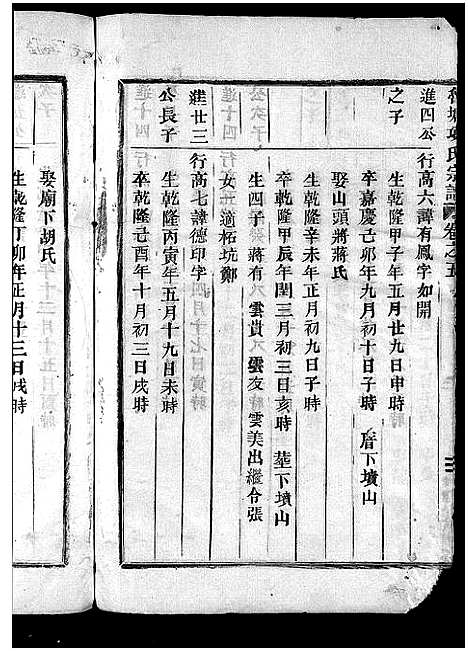 氏宗譜 卷之五
進四公
之子
行高六諱有鳳字如開
生乾隆甲子年五月廿九日申時
卒嘉慶己卯年九月初十日子時 下墳山
娶山頭蔣蔣氏
生乾隆辛未年正月初九日子時
卒乾隆甲辰年閏三月初三日亥時 下墳山
生四子 蔣有 雲貴 雲友 雲美出繼令張
女一適柘坑鄭
進廿三
公長子
行高七諱德印字
生乾隆丙寅年五月十九日未時
卒乾隆己酉年十月初三日戌時
娶廟下胡氏
生乾隆丁卯年正月十三日戌時